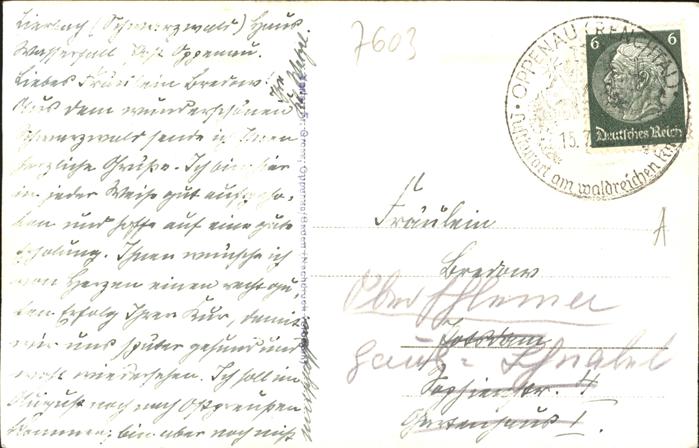 Lierbach (Schwarzwald) Haus
Wasserfall Post Oppenau.
Liebes Fräulein Bredow!
Aus dem wunderschönen
Schwarzwald sende ich Ihnen
herzliche Grüße. Ich bin hier
in jeder Weise gut aufgeho-
ben und hoffe auf eine gute
Erholung. Ihnen wünsche ich
von Herzen einen recht gu-
ten Erfolg Ihrer Kur, damit
wir uns später gesund und
wohl wiedersehen. Ich soll im
August noch nach Ostpreußen
kommen; bin aber noch nicht
Ihr
7603
OPPENAU (RENCHTAL)
Luftkurort am waldreichen
15.7
6 6
Deutsches Reich
Fräulein
Bredow
Ober Schlema
Potsdam
Haus Schnabel
Sophienstr. 4
Gartenhaus I.
A